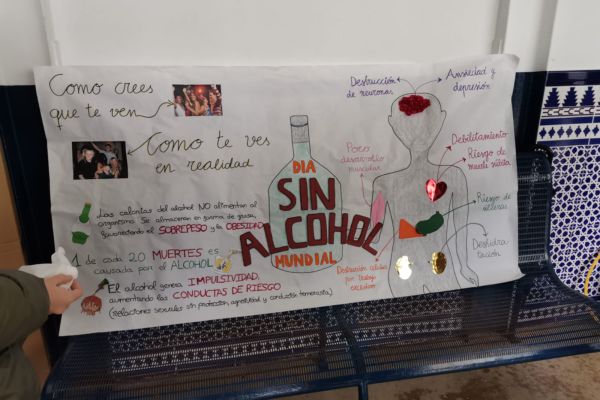 Como crees
que te ven
Como te ves
en realidad
Las calorías del alcohol NO alimentan al
organismo. Se almacenan en forma de grasa,
favoreciendo el SOBREPESO y la OBESIDAD
1 de cada 20 MUERTES es
causada por el ALCOHOL
El alcohol genera IMPULSIVIDAD,
aumentando las CONDUCTAS DE RIESGO
(relaciones sexuales sin protección, agresividad y conducción temeraria).
DIA
SIN
ALCOHOL
MUNDIAL
Destrucción
de neuronas
Ansiedad y
depresión
Poco
desarrollo
muscular
Debilitamiento
Riesgo de
muerte súbita
Riesgo de
úlceras
Deshidra
tación
Destrucción células
por trabajo
excesivo